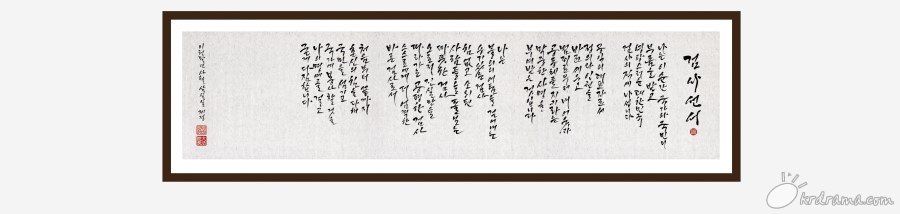 검사선서
나는 이 순간 국가와 국민의
부름을 받고
영광스러운 대한민국
검사의 직에 나섭니다
공익의 대표자로서
정의와 인권을
바로 세우고
범죄로부터 내 이웃과
공동체를 지키라는
막중한 사명을
부여받은 것입니다
나는
불의의 어둠을 걷어내는
용기있는 검사
힘없고 소외된
사람들을 돌보는
따뜻한 검사
오로지 진실만을
따라가는 공평한 검사
스스로에게 더 엄격한
바른 검사로서
처음부터 끝까지
혼신의 힘을 다해
국민을 섬기고
국가에 봉사할 것을
나의 명예를 걸고
굳게 다짐합니다
krdrama.com